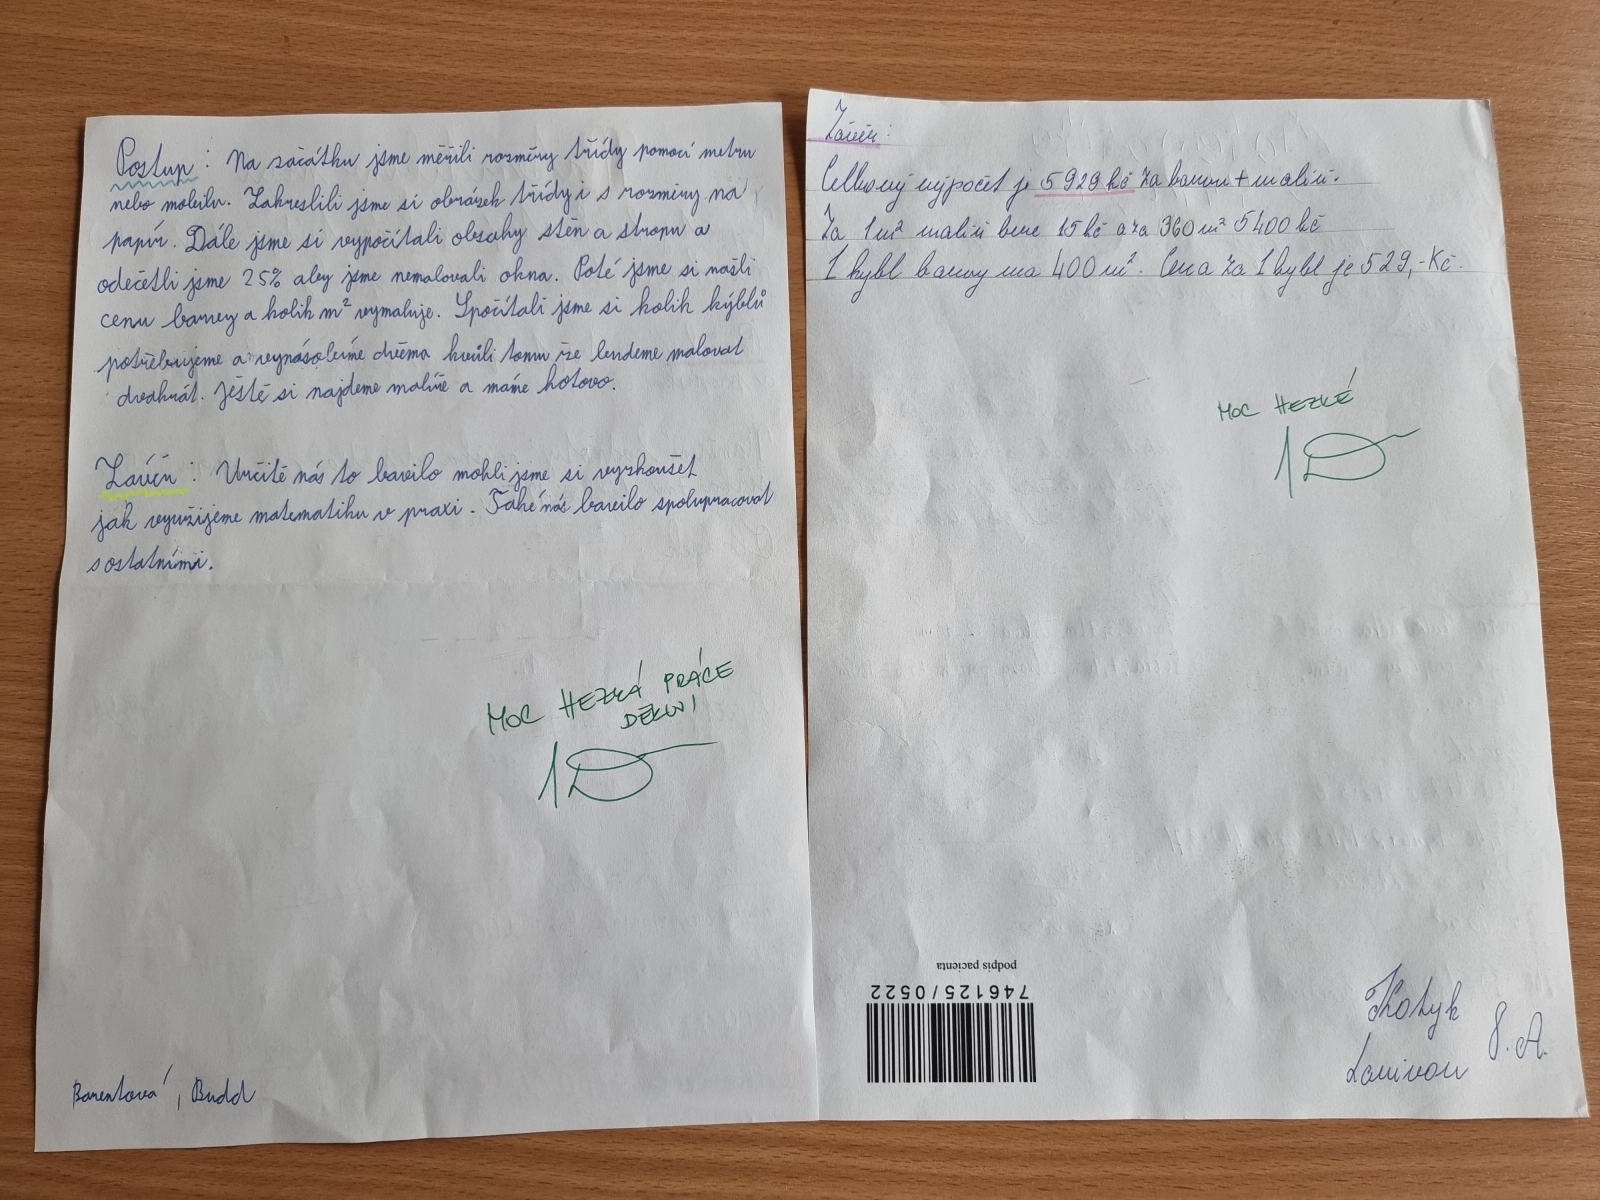 Postup: Na začátku jsme měřili rozměry třídy pomocí metru
nebo mobilu. Zakreslili jsme si obrázek třídy i s rozměry na
papír. Dále jsme si vypočítali obsahy stěn a stropu a
odečetli jsme 25% aby jsme nemalovali okna. Poté jsme si našli
cenu barvy a kolik m² vymaluje. Spočítali jsme si kolik kýblů
potřebujeme a vynásobíme dvěma kvůli tomu že budeme malovat
dvakrát. Ještě si najdeme malíře a máme hotovo.
Závěr: Určitě nás to bavilo mohli jsme si vyzkoušet
jak využijeme matematiku v praxi. Také nás bavilo spolupracovat
s ostatními.
MOC HEZKÁ PRÁCE
DĚKUJI
1
Barentová, Budd
Závěr:
Celkový výpočet je 5 929 kč za barvu + malíři.
Za 1 m² malíři bere 15 kč a za 360 m² 5 400 kč
1 kýbl barvy na 400 m². Cena za 1 kybl je 529,- Kč.
MOC HEZKÉ
1
podpis pacienta
746125/0522
Kotyk
8. A.